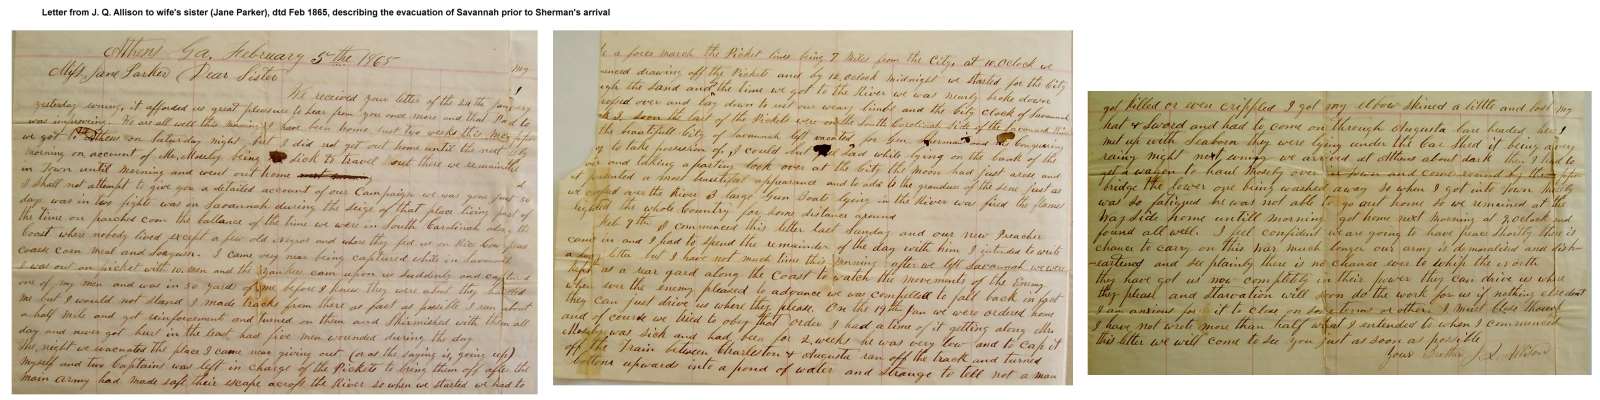 Letter from J. Q. Allison to wife's sister (Jane Parker), dtd Feb 1865, describing the evacuation of Savannah prior to Sherman's arrival
Athens Ga, February 5th 1865
Miss Jane Parker Dear Sister
We received your letter of the
yesterday it afforded us great pleasure to hear from you once more and that Pad is
was improving. We are all well this morning I have been home Just two weeks this
we got to Athens on Saturday night but I did not get out home until the next
morning on account of Mr. Mosby being sick to travel out there we remained
in Town until morning and went out home
I shall not attempt to give you a detailed account of our Campaign we was gone Just 50
days was in two fights was in Savannah during the seige of that place living part of
the time on parched corn the ballance of the time we were in South Carolina along the
Coast where nobody lived except a few old negros and where they fed us on Rice Cow peas
coarse Corn meal and Sorgum. I came very near being captured while in Savannah
I was out on picket with 10 men and the Yankees cam upon us suddenly and captured
one of my men and was in 30 yards of me before I knew they were about they
me but I would not stand I made tracks from there as fast as possible I ran about
a half mile and got reinforcement and turned on them and skirmished with them all
day and never got hurt in the least had five men wounded during the day
The night we evacuated the place I came near giving out (or as the saying is, going up)
Myself and two Captains was left in charge of the Pickets to bring them off after the
main army had made saft their escape across the River so when we started we had to
a force march the Picket lines being 7 Miles from the City, at 10 Oclock we
drawing off the Pickets and by 12 Oclock midnight we started for the City
the sand and the time we got to the River we was nearly broke down
over and lay down to rest our weary limbs and the City clock of Savannah
seen the last of the Pickets were on the South Carolina side of the Savannah
the beautifull City of Savannah left vacated for Gen Sherman and the Conquering
to take possession of, I could but feel Sad while lying on the bank of the
and taking a parting look over at the City the Moon had just arose and
it presented a most beautiful appearance and to add to the grandeur of the sene just as
we crossed over the River 2 large Gun Boats lying in the River was fired the flames
the whole Country for some distance around
Feb 9th I commenced this letter last Sunday and our new Preacher
came in and I had to spend the remainder of the day with him I intended to write
a long letter but I have not much time this morning after we left Savannah we were
kept as a rear gard along the Coast to watch the movements of the Enemy
when ever the enemy pleased to advance we was compelled to fall back in fact
they can just drive us where they please. On the 19th Jan we were ordered home
and of course we tried to obey that order I had a time of it getting along Mr.
Mosby was sick and had been for 2 weeks he was very low and to cap it
off the Train between Charleston & Augusta ran off the track and turned
bottom upwards into a pond of water and strange to tell not a man
got killed or even crippled I got my elbow skined a little and lost my
hat & Sword and had to come on through Augusta bare headed, here I
met up with Seaborn they were lying under the Car Shed it being a very
rainy night next evning we arrived at Athens about dark then I had to
get a wagon to haul Mosby over to town and come around by the upper
bridge the lower one being washed away so when I got into Town Mosby
was so fatigued he was not able to go out home so we remained at the
Way Side home untill morning got home next morning at 9 oclock and
found all well. I feel confident we are going to have peace shortly there is no
chance to carry on this war much longer our army is demoralised and dish-
eartened and see plainly there is no chance ever to whip the north
they have got us now completely in their power they can drive us where
they please and Starvation will soon do the work for us if nothing else dont
I am anxious for it to close on some terms or other. I must close though
I have not wrote more than half what I intended to when I commenced
this letter we will come to see you just as soon as possible
Your Brother J. Q. Allison